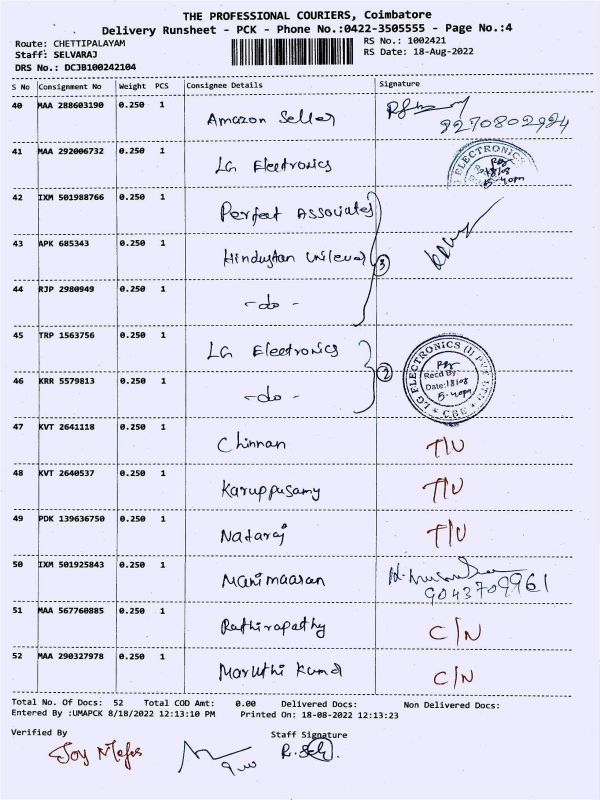 THE PROFESSIONAL COURIERS, Coimbatore
Delivery Runsheet - PCK - Phone No.:0422-3505555 - Page No.:4
Route: CHETTIPALAYAM RS No.: 1002421
Staff: SELVARAJ RS Date: 18-Aug-2022
DRS No.: DCJB100242104
S No Consignment No Weight PCS Consignee Details Signature
40 MAA 288603190 0.250 1 Amazon Seller
9270802984
41 MAA 292006732 0.250 1 LG Electronics LG ELECTRONICS 18/08 5-40pm
42 IXM 501988766 0.250 1 Perfect Associates
43 APK 685343 0.250 1 Hindustan Unilever 3
44 RJP 2980949 0.250 1 -do-
45 TRP 1563756 0.250 1 LG Electronics
2 LG ELECTRONICS (I) PVT LTD * CBE * Recd By: Date: 18/08 5-40pm
46 KRR 5579813 0.250 1 -do-
47 KVT 2641118 0.250 1 Chinnan T/U
48 KVT 2640537 0.250 1 Karuppusamy T/U
49 PDK 139636750 0.250 1 Nataraj T/U
50 IXM 501925843 0.250 1 Manimaaran
9043709961
51 MAA 567760885 0.250 1 Pathirapathy C/N
52 MAA 290327978 0.250 1 Maruthi C/N
Total No. Of Docs: 52 Total COD Amt: 0.00 Delivered Docs: Non Delivered Docs:
Entered By :UMAPCK 8/18/2022 12:13:10 PM Printed On: 18-08-2022 12:13:23
Verified By Staff Signature
Joy